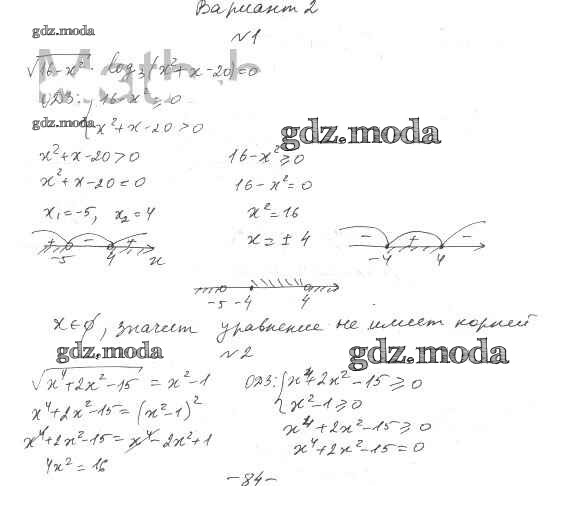 Вариант 2
gdz.moda
№1
√16-x² · log₃(x²+x-20)=0
ОДЗ: { 16-x² ≥ 0
gdz.moda { x²+x-20>0 gdz.moda
x²+x-20>0 16-x² ≥ 0
x²+x-20=0 16-x²=0
x₁=-5, x₂=4 x²=16
+ - + x=±4 - + -
-5 4 x -4 4
-5 -4 4
x∈∅, значит уравнение не имеет корней
gdz.moda №2 gdz.moda
√x⁴+2x²-15 = x²-1 ОДЗ: { x⁴+2x²-15 ≥ 0
x⁴+2x²-15=(x²-1)² { x²-1 ≥ 0
x⁴+2x²-15=x⁴-2x²+1 x⁴+2x²-15 ≥ 0
4x²=16 x⁴+2x²-15=0
-84-